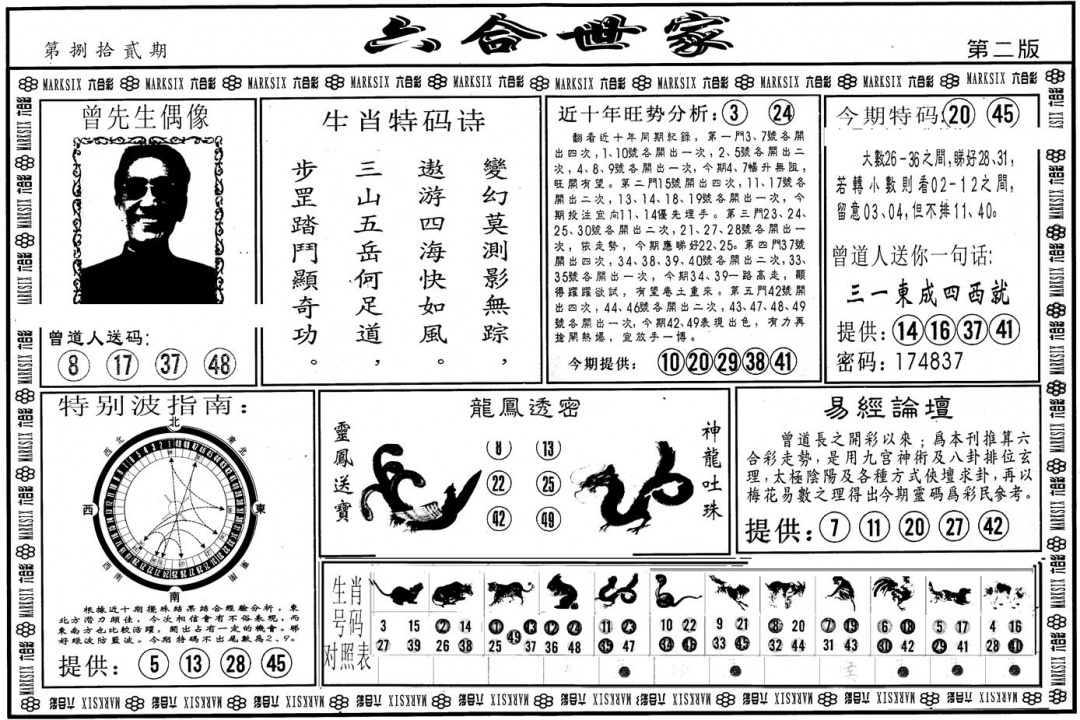 第捌拾貳期
六合世家
第二版
MARKSIX 六合彩 MARKSIX 六合彩 MARKSIX 六合彩 MARKSIX 六合彩 MARKSIX 六合彩 MARKSIX 六合彩 MARKSIX 六合彩 MARKSIX 六合彩 MARKSIX 六合彩 MARKSIX 六合彩
曾先生偶像
曾道人送码:
8 17 37 48
牛肖特码诗
變幻莫測影無踪，
遨游四海快如風。
三山五岳何足道，
步罡踏鬥顯奇功。
近十年旺势分析: 3 24
翻看近十年同期紀錄，第一門3、7號各開
出四次，1、10號各開出一次，2、5號各開出二
次，4、8、9號各開出一次，今期4、7暢升無阻，
旺開有望。第二門15號開出四次，11、17號各
開出二次，13、14、18、19號各開出一次，今
期投注宜向11、14優先埋手。第三門23、24、
25、30號各開出二次，21、27、28號各開出一
次，依走勢，今期應睇好22、25。第四門37號
開出四次，34、38、39、40號各開出二次，33、
35號各開出一次，今期34、39一路高走，顯
得躍躍欲試，有望卷土重來。第五門42號開
出四次，44、46號各開出二次，43、47、48、49
號各開出一次，今期42、49表現出色，有力再
搶鬧熱爆，宜放手一博。
今期提供: 10 20 29 38 41
今期特码: 20 45
大數26-36之間，睇好28、31，
若轉小數則看02-12之間，
留意03、04，但不排11、40。
曾道人送你一句话:
三一東成四西就
提供: 14 16 37 41
密码: 174837
特别波指南:
北
西北 東北
西 東
西南 東南
南
根據近十期攪珠結果結合經驗分析，東
北方潛力頗佳，今次相信會有不俗表現。而
東南方也比較活躍，開出占有一定的機會。睇
好綠波防藍波。今期特碼不出尾數為2、9。
提供: 5 13 28 45
龍鳳透密
靈鳳送寶
神龍吐珠
8 13
22 25
42 49
易經論壇
曾道長之開彩以來；爲本刊推算六
合彩走勢，是用九宫神術及八卦排位玄
理，太極陰陽及各種方式俠壇求卦，再以
梅花易數之理得出今期靈碼爲彩民參考。
提供: 7 11 20 27 42
生肖号码对照表
3 15 2 14 1 13 12 24 11 23 10 22 9 21 8 20 7 19 6 18 5 17 4 16
27 39 26 38 25 49 37 36 48 35 47 34 46 33 45 32 44 31 43 30 42 29 41 28 40